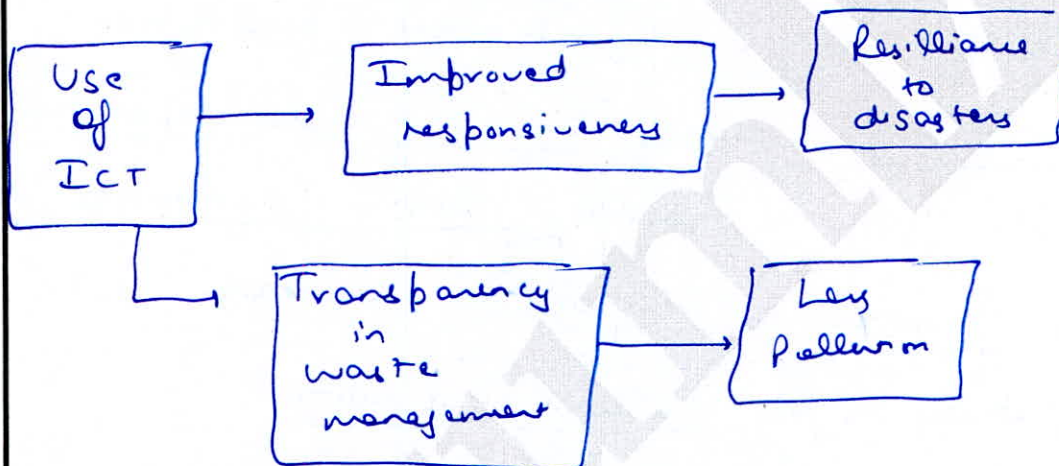 Use
of
ICT
Improved
responsiveness
Resilliance
to
disasters
Transparency
in
waste
management
Less
Pollution